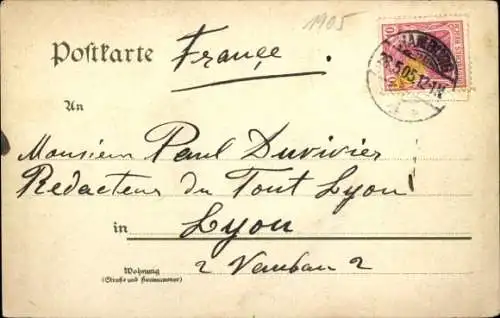 1905
Postkarte France.
HAMBURG
26.5.05.12-1N.
10 10
An
Monsieur Paul Duvivier
Redacteur du Tout Lyon
in Lyon
2 Vauban 2
Wohnung
(Straße und Hausnummer)